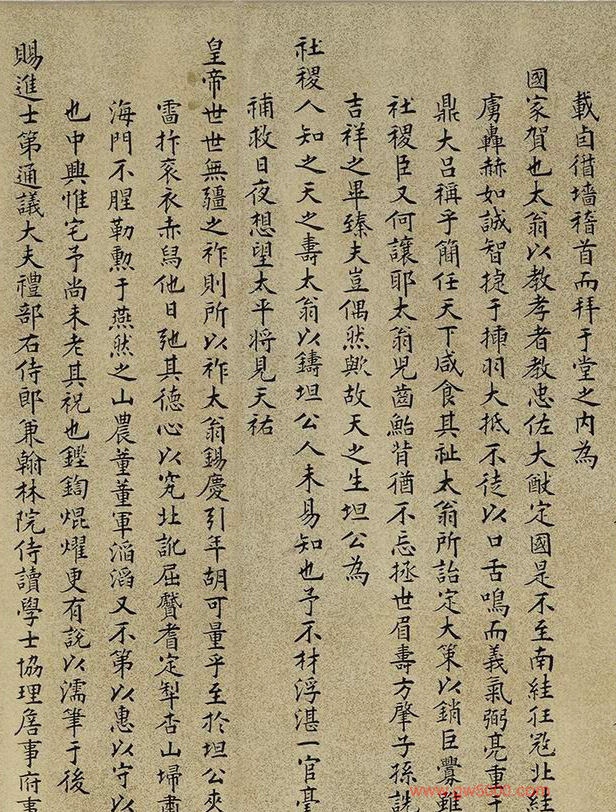 載卣僣墻稽首而拜于堂之內為
國家賀也太翁以教孝者教忠佐大猷定國是不至南絓狂寇北絓
虜轟赫如誠智捷于揷羽大抵不徒以口舌鳴而義氣弼亮重于
鼎大呂稱乎簡任天下咸食其祉太翁所詒定大策以銷巨釁雖
社稷臣又何讓耶太翁兒齒鮐背猶不忘拯世眉壽方肈子孫說
吉祥之畢臻夫豈偶然歟故天之生坦公為
社稷人知之天之壽太翁以鑄坦公人未易知也予不材浮湛一官毫
補救日夜想望太平将見天祐
皇帝世世無疆之祚則所以祚太翁錫慶引年胡可量乎至於坦公夾
雷抃袞衣赤舄他日弛其德心以究北訛屈贒耆定犁杏山埽肅
海門不腥勒勲于燕然之山農董董軍滔滔又不第以惠以守以
也中興惟宅予尚未老其祝也鏗鍧焜燿更有說以濡筆于後
賜進士第通議大夫禮部右侍郎兼翰林院侍讀學士協理詹事府事
www.gw5000.com